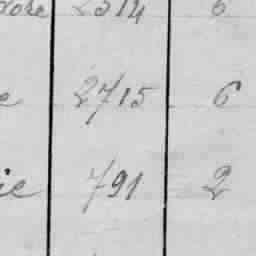 2314 6
e 2715 6
ie 791 2